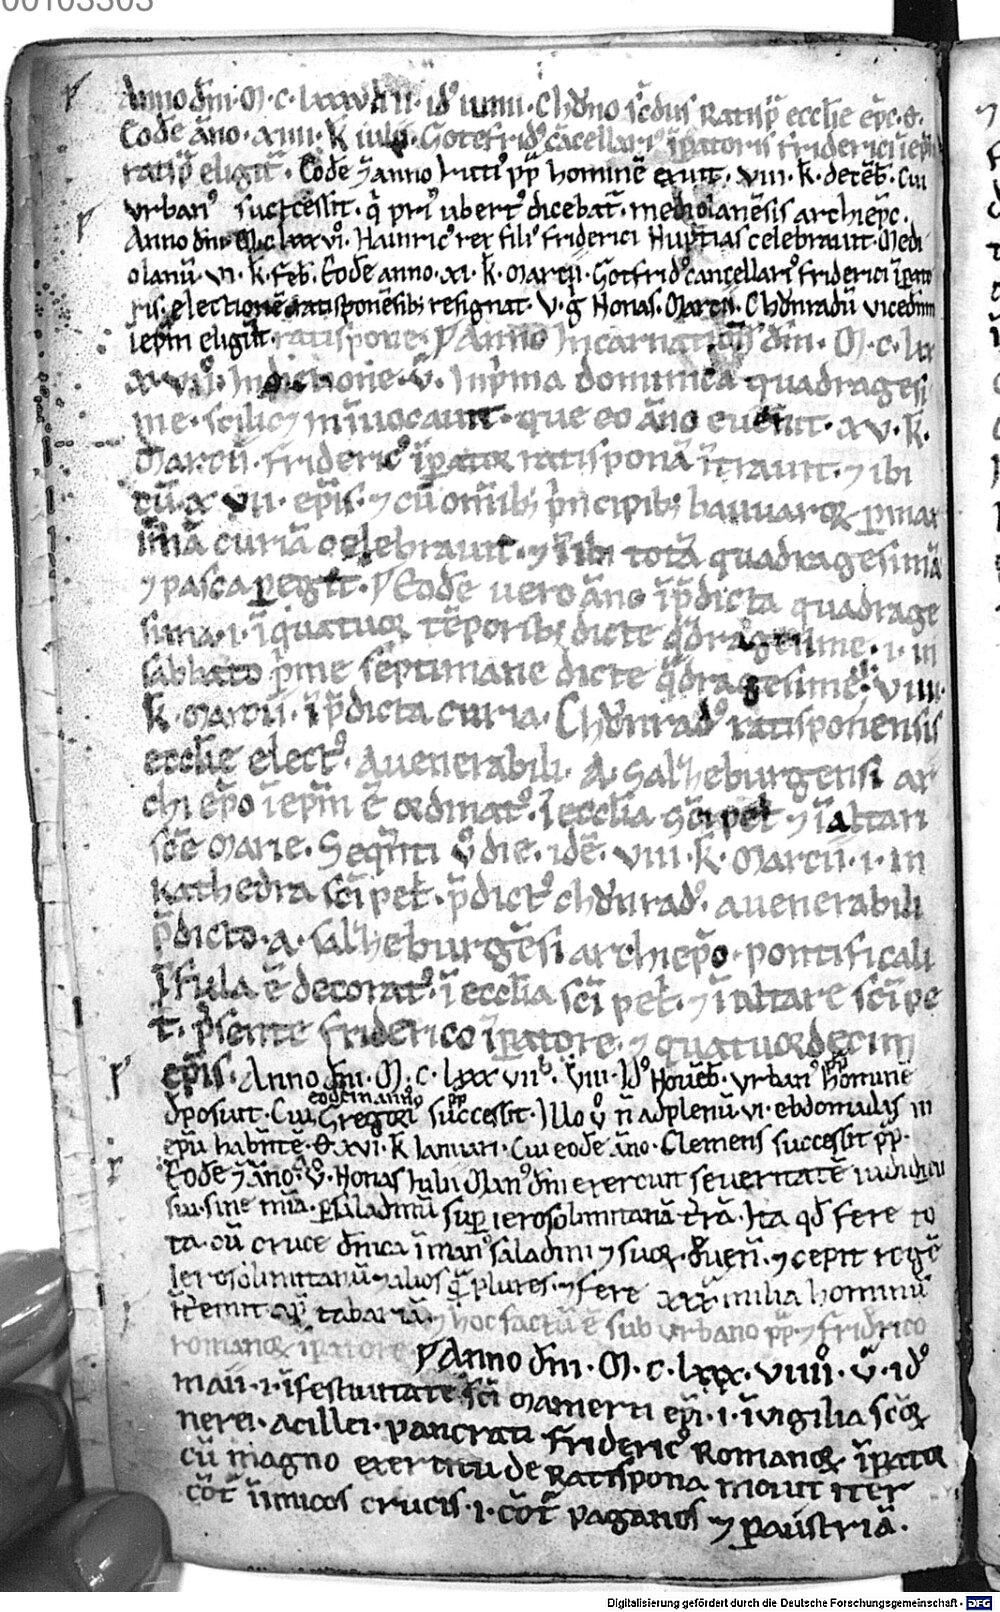 00103303
Anno dm̄i · M · c · lxxxv · ii · id' iunii · Chv̊no scd'us Ratisp̄ eccl̄ie ep̄c · o ·
Eodē āno · xiiii · k̄ iulii · Gotefrid' cācellari' īp̄atoris friderici ī ep̄m
ratisp̄ eligit̄ · Eodē ⁊ anno luci' pp̄ hominē exuit · viii · k̄ · decēb̄ · Cui
vrban' successit · q̄ pri' ubert' dicebat̄ · mediolanēsis archiep̄c ·
Anno dm̄i · M · c · lxxxvi° · Hainric' rex fili' friderici Nup̄tias celebrauit · Medi
olanū · vi · k̄ · feb̄ · Eodē anno · xi · k̄ · marcii · Gotfrid' cancellari' friderici īp̄ato
ris · electionē ratisponēsib; resignat · V · g Nonas · Marcii · Chv̊nradū vicednm
ī ep̄m eligūt · ratispone · Anno Incarnationis dm̄i · M · c · lxx
x · vii · Indictione · v̄ · In p̄ma dominica quadragesi
me · scilic⁊ in īuocauit · que eo āno euenit · xv · k̄ ·
Marcii · frideric' īp̄ator ratisponā ītrauit · ⁊ ibi
cū · xvii · ep̄is · ⁊ cū om̄ib; p̄ncipib; bauuaroꝝ p̄max
imā curiā celebrauit · ⁊ ibi totā quadragesimā
⁊ pasca ꝑegit · Eodē vero āno ī p̄dicta quadrage
sima · i · ī quatuoꝛ tēporib; dicte q̄dragesime · i · in
sabbato p̄me septimane dicte q̄dragesime · viiii ·
k̄ · marcii · ī p̄dicta curia · Chv̊nrad' ratisponensis
eccl̄ie elect' · a uenerabili · A · Salzeburgensi ar
chiep̄o ī ep̄m ē ordinat' · ī eccl̄ia sc̄i pet̄ · ⁊ ī altari
sc̄e Marie · Seq̄nti v̊ die · idē · viii · k̄ · Marcii · i · in
kathedra sc̄i pet̄ · p̄dict' chv̊nrad' · a uenerabili
p̄dicto · a · salzeburgēsi archiep̄o · pontificali
īfula ē decorat' · ī eccl̄ia sc̄i pet̄ · ⁊ ī altare sc̄i pe
t̄ · p̄sente friderico īp̄atore · ⁊ quatuordecim
ep̄is · Anno dm̄i · M · c · lxxxvii · viii · Id' Nouēb̄ · vrban' pp̄ hominē
dposuit · Cui eodem anno Gregori' pp̄ successit · Illo v̊ n̄ ad plenū · vi · ebdomadas in
ep̄u habn̄te · o · xvi · k̄ Ianuari · Cui eodē āno · Clemens successit pp̄ ·
Eodē ⁊ āno · v̊ · Nonas Iulii Man' dm̄i exercuit seueritatē iudicii
sui · sine mīa · ꝑ saladinū sup ierosolimitanā t̄rā · Ita qd̄ fere to
ta · cū cruce dn̄ica ī man' saladini ⁊ suoꝝ · deuen̄ · ⁊ cepit regē
Ierosolimitanū ⁊ alios q̄ plures · ⁊ fere xxx milia hominū
īt̄emit ap̄ tabariā · ⁊ hoc factū ē sub vrbano pp̄ ⁊ fridrico
romanoꝝ īp̄atore · Anno dm̄i · M · c · lxxx · viiii° · v̄ · id'
maii · i · ī festiuitate sc̄i mamerti ep̄i · i · ī vigilia sc̄oꝝ
nerei · acillei · pancrati frideric' Romanoꝝ īp̄atoꝛ
cū magno exercitu de Ratispona mouit iter
cōt̄ īimicos crucis · i · cōt̄ paganos ⁊ ꝑ austriā ·
Digitalisierung gefördert durch die Deutsche Forschungsgemeinschaft - DFG